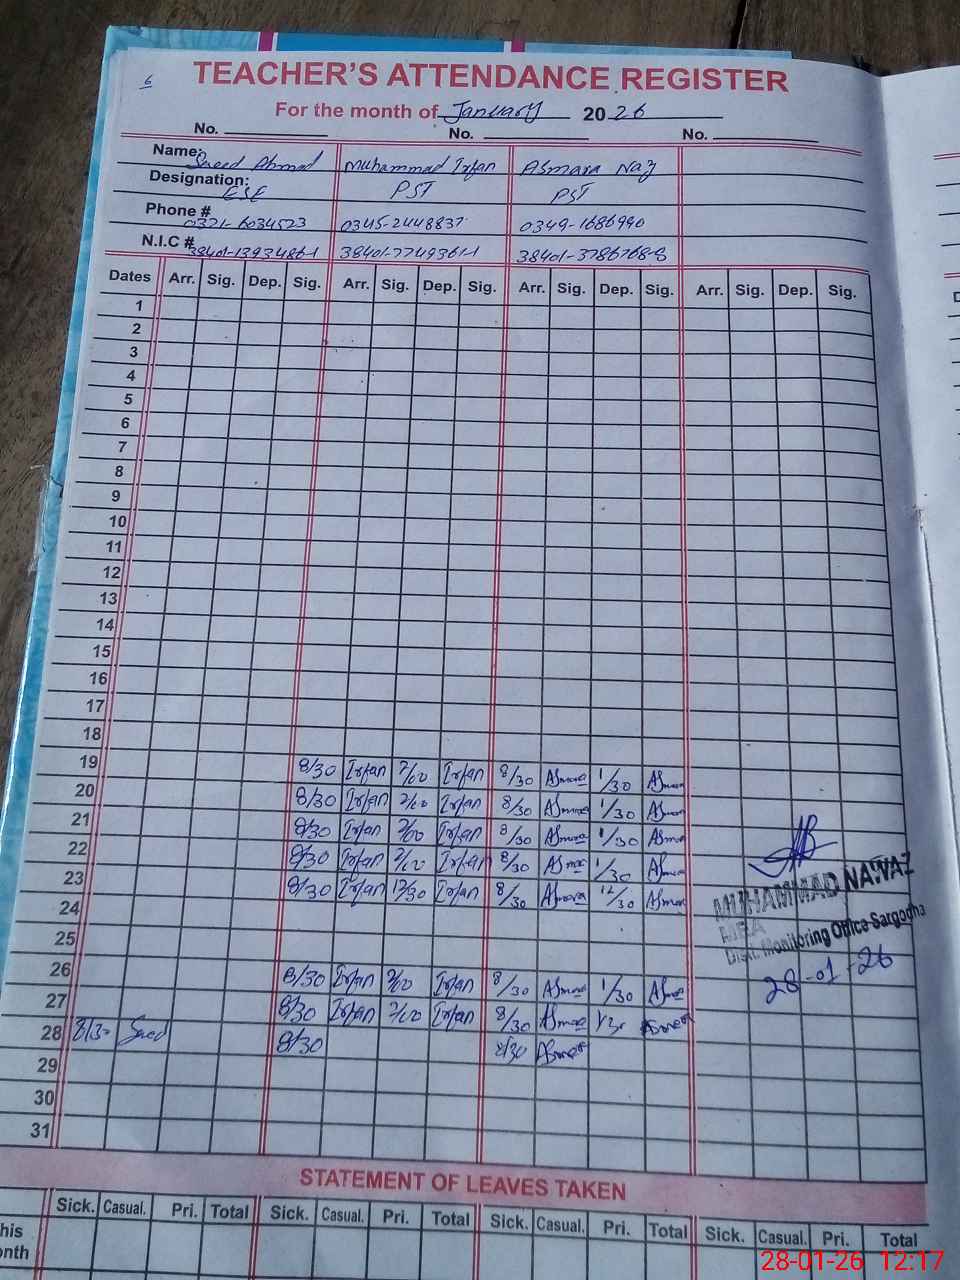 6
TEACHER'S ATTENDANCE REGISTER
For the month of January 2026
No. No. No.
Name: Saeed Ahmad Muhammad Irfan Asmara Naz
Designation: ESE PST PST
Phone # 0321-6034523 0345-2448837 0349-1686990
N.I.C # 38401-1393486-1 38401-7749361-1 38401-3786768-8
Dates Arr. Sig. Dep. Sig. Arr. Sig. Dep. Sig. Arr. Sig. Dep. Sig. Arr. Sig. Dep. Sig.
1
2
3
4
5
6
7
8
9
10
11
12
13
14
15
16
17
18
19 8/30 Irfan 2/00 Irfan 8/30 Asmara 1/30 Asmara
20 8/30 Irfan 2/00 Irfan 8/30 Asmara 1/30 Asmara
21 8/30 Irfan 2/00 Irfan 8/30 Asmara 1/30 Asmara
22 8/30 Irfan 2/00 Irfan 8/30 Asmara 1/30 Asmara
23 8/30 Irfan 12/30 Irfan 8/30 Asmara 12/30 Asmara
24
25
26 8/30 Irfan 2/00 Irfan 8/30 Asmara 1/30 Asmara
27 8/30 Irfan 2/00 Irfan 8/30 Asmara 1/30 Asmara
28 8/30 Saeed 8/30 8/30 Asmara
29
30
31
MUHAMMAD NAWAZ
MEA
Distt. Monitoring Office Sargodha
28-01-26
STATEMENT OF LEAVES TAKEN
Sick. Casual. Pri. Total Sick. Casual. Pri. Total Sick. Casual. Pri. Total Sick. Casual. Pri. Total
his
onth
28-01-26 12:17